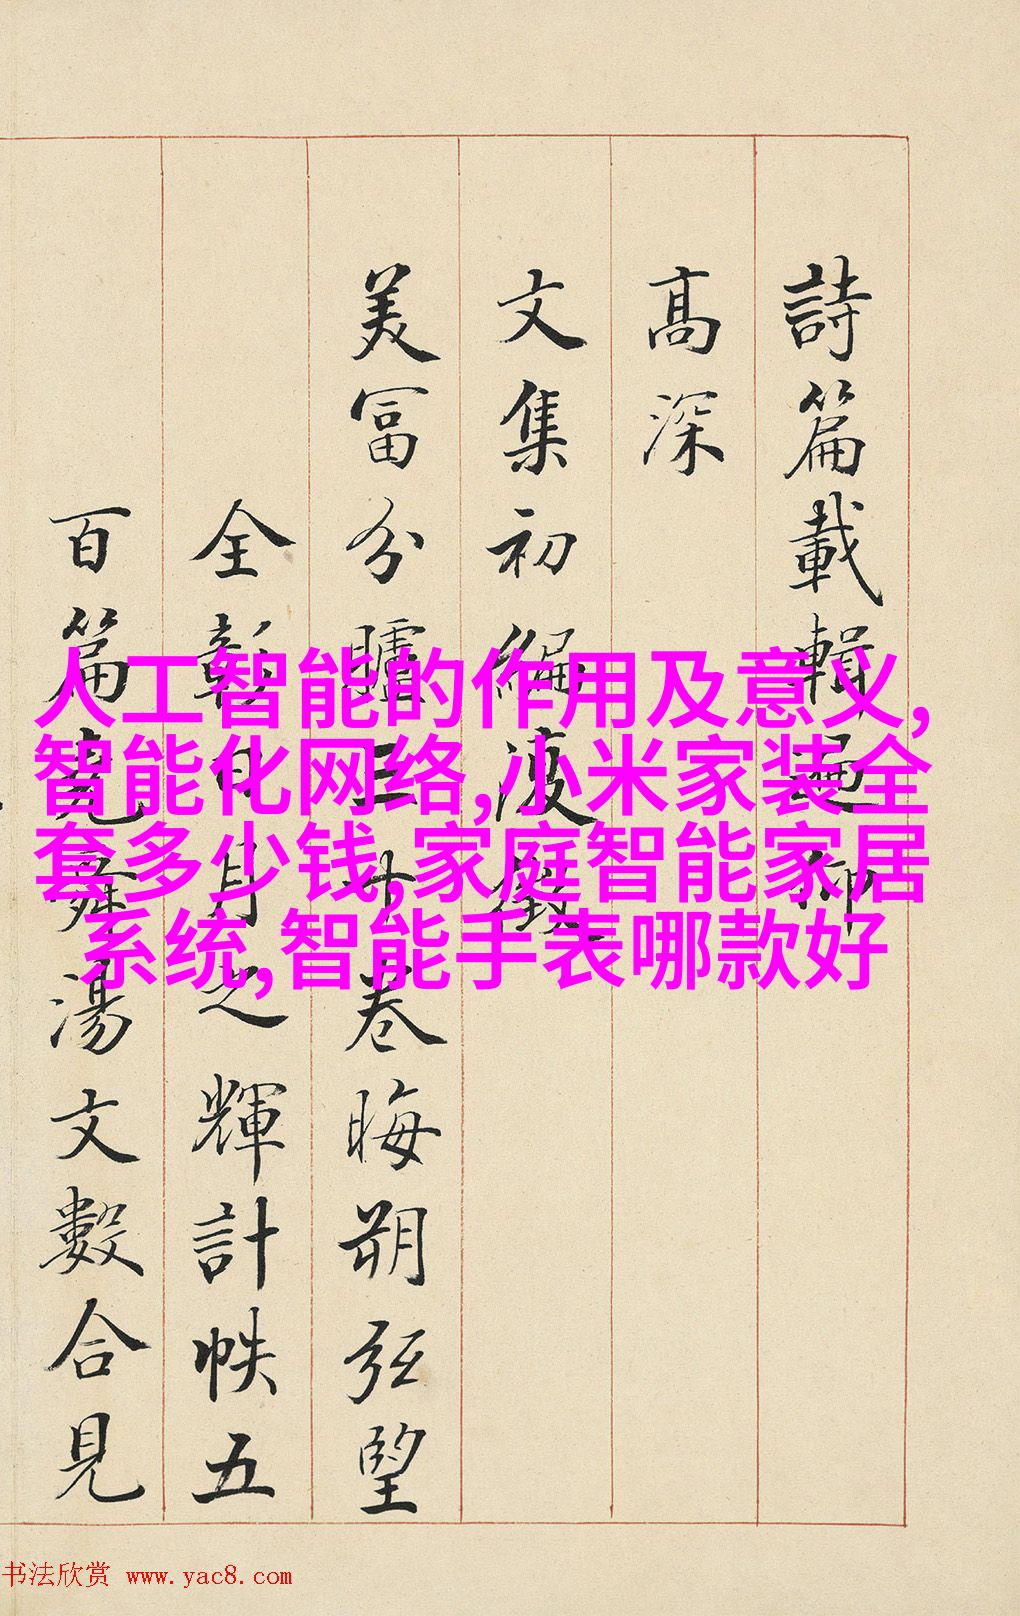 詩篇載輯廼仰
高深
文集初編復徵
美富分臚三十卷晦朔弦望
全彰日月之輝計帙五
百篇堯舜湯文數合見
人工智能的作用及意义,
智能化网络,小米家装全
套多少钱,家庭智能家居
系统,智能手表哪款好
书法欣赏 www.yac8.com